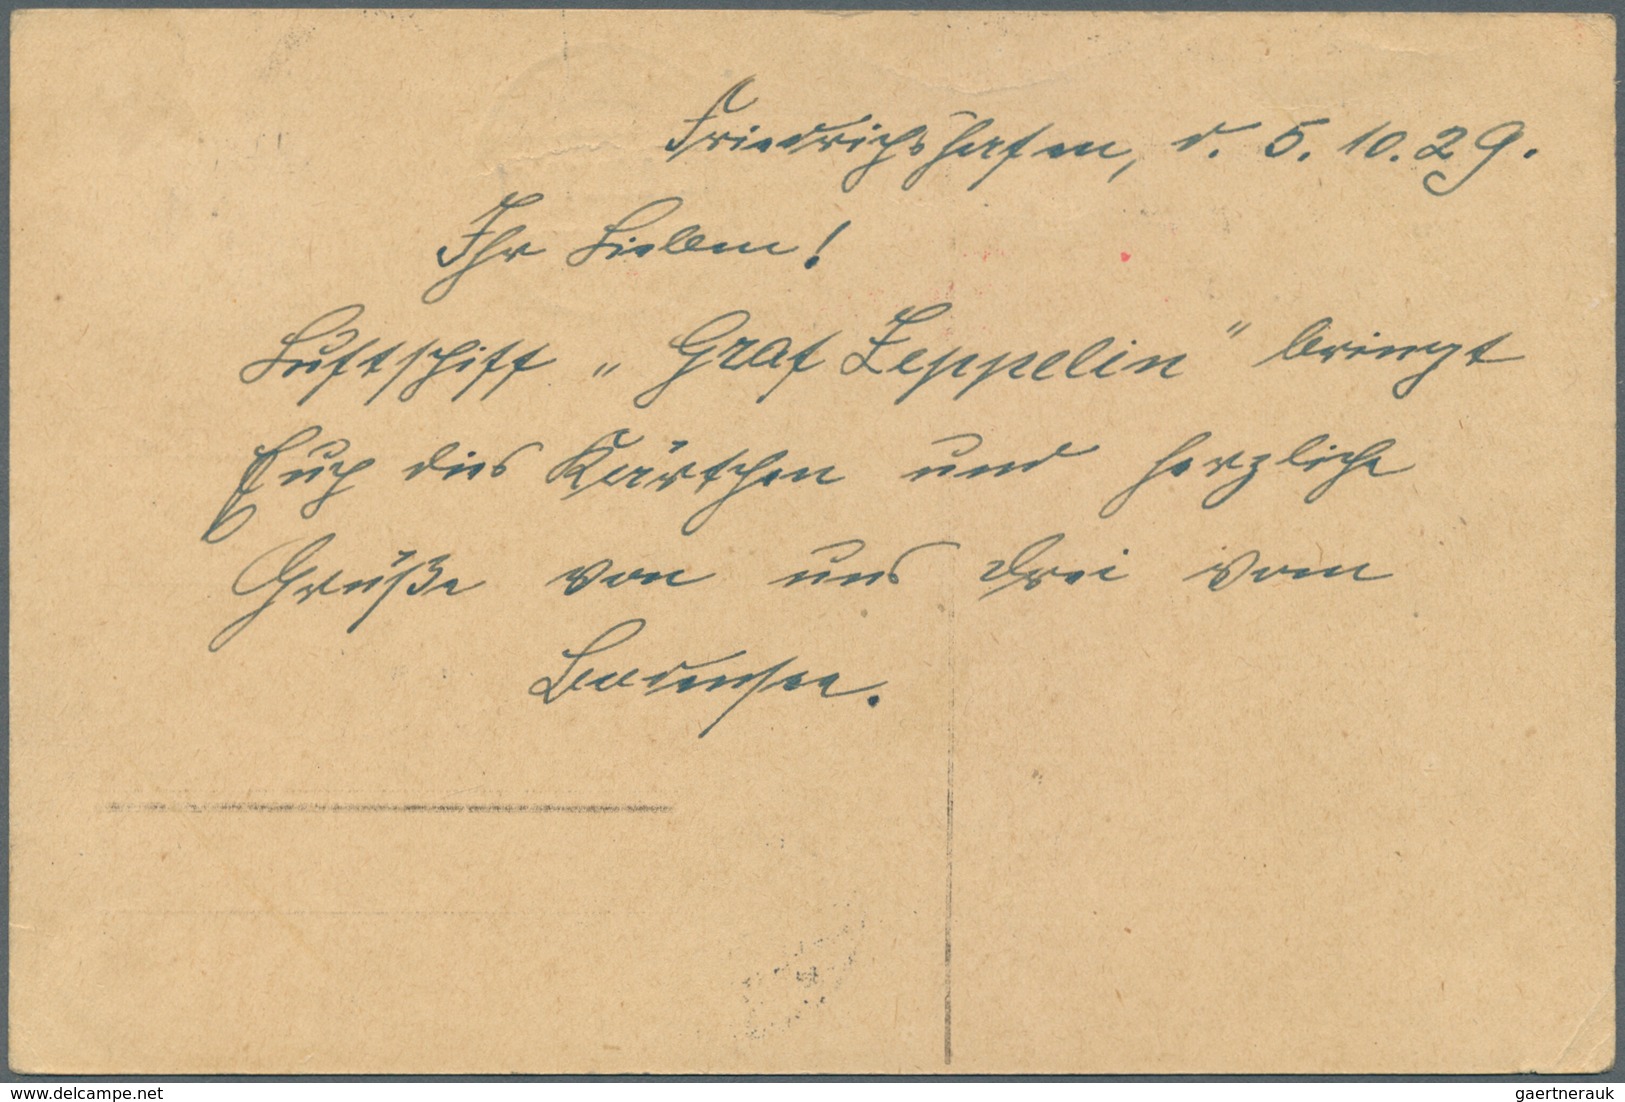 Friedrichshafen, d. 5.10.29.
Ihr Lieben!
Luftschiff „Graf Zeppelin" bringt
Euch dies Kärtchen und herzliche
Grüße von uns drei vom
Bodensee.
gaertnerauk / delcampe.net